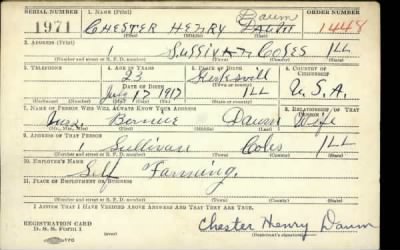 SERIAL NUMBER 1. NAME (Print) ORDER NUMBER
Daum
1971 CHESTER HENRY 1448
(First) (Middle) (Last)
2. ADDRESS (Print)
1 SULLIVAN COLES ILL
(Number and street or R. F. D. number) (Town) (County) (State)
3. TELEPHONE 4. AGE IN YEARS 5. PLACE OF BIRTH 6. COUNTRY OF CITIZENSHIP
23
DATE OF BIRTH (Town or county)
July 17 1917 ILL U.S.A.
(Mo.) (Day) (Yr.) (State or country)
7. NAME OF PERSON WHO WILL ALWAYS KNOW YOUR ADDRESS 8. RELATIONSHIP OF THAT PERSON
Mrs. Bernice Daum Wife
(Mr., Mrs., Miss) (First) (Middle) (Last)
9. ADDRESS OF THAT PERSON
1 Sullivan Coles ILL
(Number and street or R. F. D. number) (Town) (County) (State)
10. EMPLOYER'S NAME
Self Farming.
11. PLACE OF EMPLOYMENT OR BUSINESS
(Number and street or R. F. D. number) (Town) (County) (State)
I AFFIRM THAT I HAVE VERIFIED ABOVE ANSWERS AND THAT THEY ARE TRUE.
REGISTRATION CARD
D. S. S. Form 1 Chester Henry Daum
(Registrant's signature)